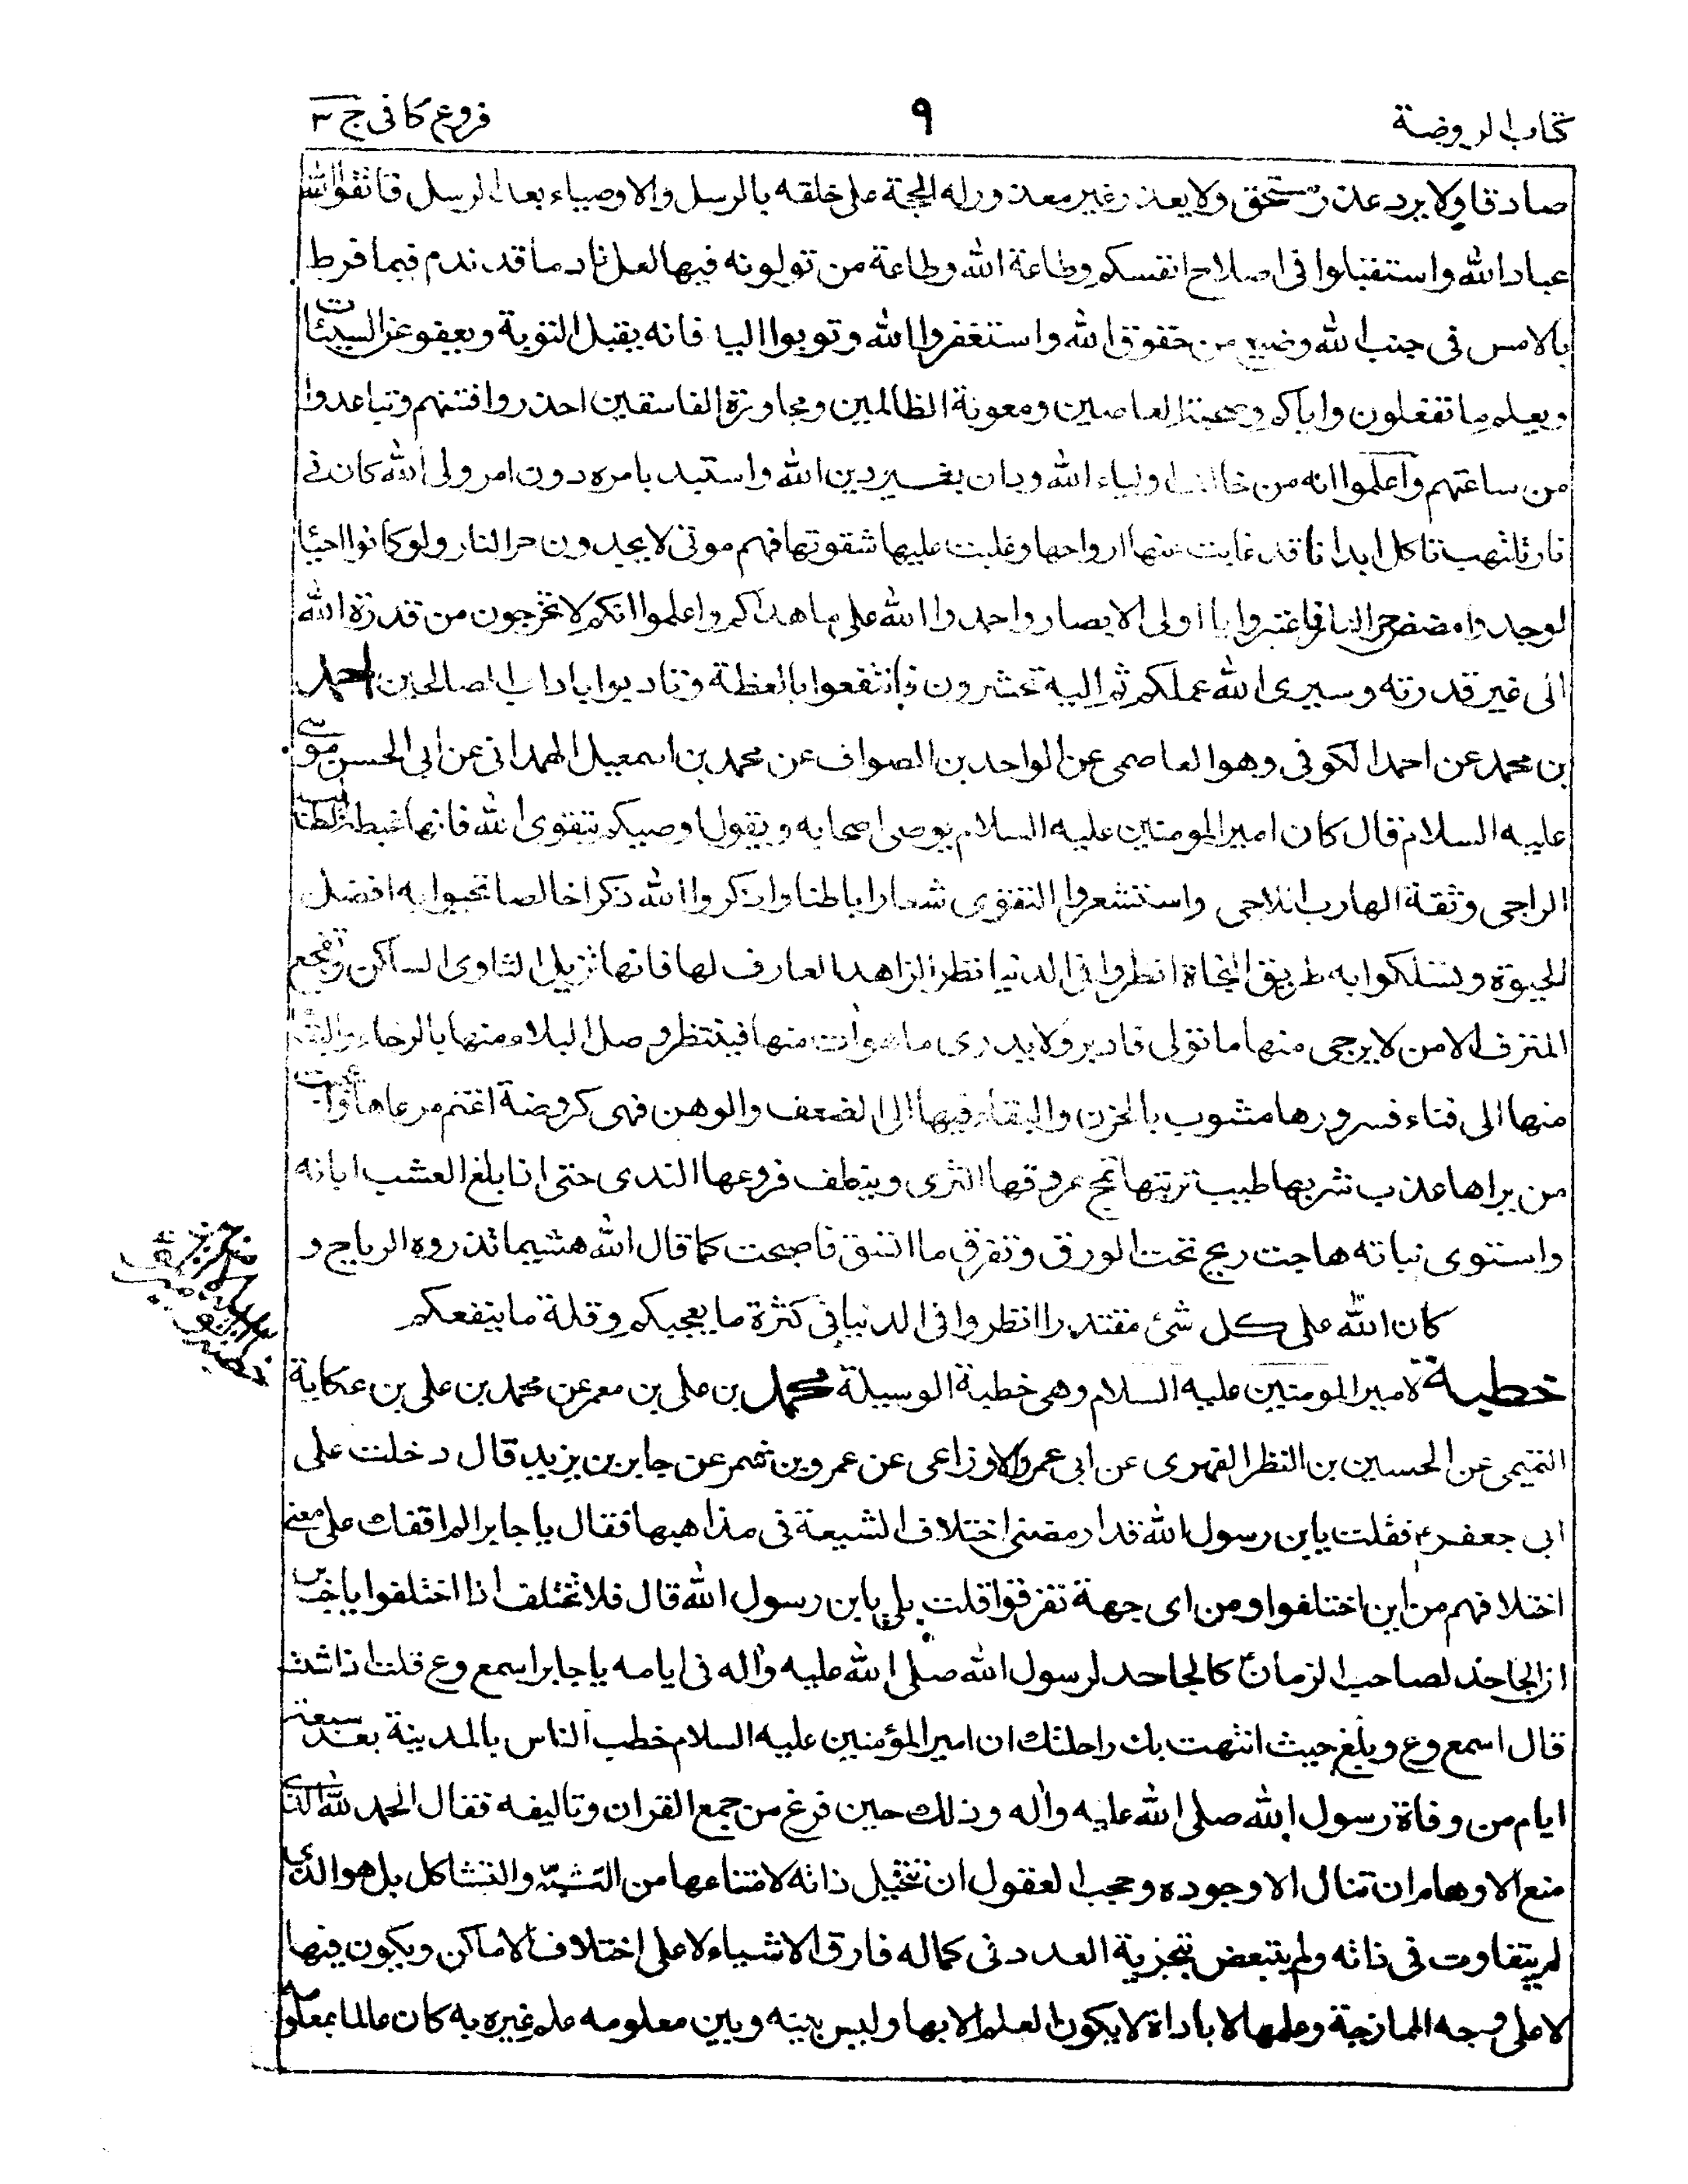 كتاب الروضة
٩
فروع كافى ج ٣
صادقا ولا يرد عذر مستحق ولا يعذر غير معذور له الحجة على خلقه بالرسل والاوصياء بعد الرسل فاتقوا الله
عباد الله واستقبلوا فى اصلاح انفسكم وطاعة الله وطاعة من تولونه فيها لعل نادما قد ندم فيما فرط
بالامس فى جنب الله وضيع من حقوق الله واستغفروا الله وتوبوا اليه فانه يقبل التوبة ويعفو عن السيئات
ويعلم ما تفعلون واياكم وصحبة العاصين ومعونة الظالمين ومجاورة الفاسقين احذروا فتنتهم وتباعدوا
من ساحتهم واعلموا انه من خالف اولياء الله ودان بغير دين الله واستبد بامره دون امر ولى الله كان فى
نار تلتهب تاكل ابدانا قد غابت عنها ارواحها وغلبت عليها شقوتها فهم موتى لا يجدون حر النار ولو كانوا احيا
لوجدوا مضض حر النار فاعتبروا يا اولى الابصار واحمدوا الله على ما هداكم واعلموا انكم لا تخرجون من قدرة الله
الى غير قدرته وسيرى الله عملكم ثم اليه تحشرون فانتفعوا بالعظة وتادبوا باداب الصالحين احمد
بن محمد عن احمد الكوفى وهو العاصمى عن الواحد بن الصواف عن محمد بن اسمعيل الهمدانى عن ابى الحسن موسى
عليه السلام قال كان امير المومنين عليه السلام يوصى اصحابه ويقول اوصيكم بتقوى الله فانها غبطة الطالب
الراجى وثقة الهارب اللاجى واستشعروا التقوى شعارا باطنا واذكروا الله ذكرا خالصا تحيوا به افضل
الحيوة وتسلكوا به طريق النجاة انظروا فى الدنيا نظر الزاهد العارف لها فانها تزيل الثاوى الساكن وتفجع
المترف الامن لا يرجى منها ما تولى فادبر ولا يدرى ما هو ات منها فينتظر وصل البلاء منها بالرخاء والبقاء
منها الى فناء فسرورها مشوب بالحزن والبقاء فيها الى الضعف والوهن فهى كروضة اعتم مرعاها واعجبت
من يراها عذب شربها طيب تربتها تمج عروقها الثرى وينطف فروعها الندى حتى اذا بلغ العشب ابانه
واستوى نباته هاجت ريح تحت الورق وتفرق ما اتسق فاصبحت كما قال الله هشيما تذروه الرياح و
كان الله على كل شئ مقتدرا انظروا فى الدنيا فى كثرة ما يعجبكم وقلة ما ينفعكم
خطبة لامير المومنين عليه السلام وهى خطبة الوسيلة محمد بن على بن معمر عن محمد بن على بن عكاية
التميمى عن الحسين بن النظر الفهرى عن ابى عمرو الاوزاعى عن عمرو بن شمر عن جابر بن يزيد قال دخلت على
ابى جعفر ع فقلت يابن رسول الله قد ارمضنى اختلاف الشيعة فى مذاهبها فقال يا جابر الم اقفك على معنى
اختلافهم من اين اختلفوا ومن اى جهة تفرقوا قلت بلى يابن رسول الله قال فلا تختلف اذا اختلفوا يا جابر
ان الجاحد لصاحب الزمان كالجاحد لرسول الله صلى الله عليه واله فى ايامه يا جابر اسمع وع قلت اذا شئت
قال اسمع وع وبلغ حيث انتهت بك راحلتك ان امير المؤمنين عليه السلام خطب الناس بالمدينة بعد سبعة
ايام من وفاة رسول الله صلى الله عليه واله وذلك حين فرغ من جمع القران وتاليفه فقال الحمد لله الذى
منع الاوهام ان تنال الا وجوده وحجب العقول ان تتخيل ذاته لامتناعها من الشبه والتشاكل بل هو الذى
لم يتفاوت فى ذاته ولم يتبعض بتجزية العدد فى كماله فارق الاشياء لا على اختلاف الاماكن ويكون فيها
لا على وجه الممازجة وعلمها لا باداة لا يكون العلم الا بها وليس بينه وبين معلومه علم غيره به كان عالما بمعلومه